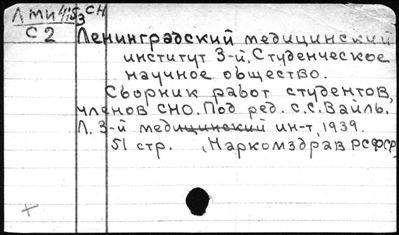 Лми 4:5 СН
3
С2
Ленинградский медицинский
институт 3-й. Студенческое
научное общество.
Сборник работ студентов,
членов СНО. Под ред. С.С. Вайль.
Л. 3-й медицинский ин-т, 1939.
51 стр. , Наркомздрав РСФСР